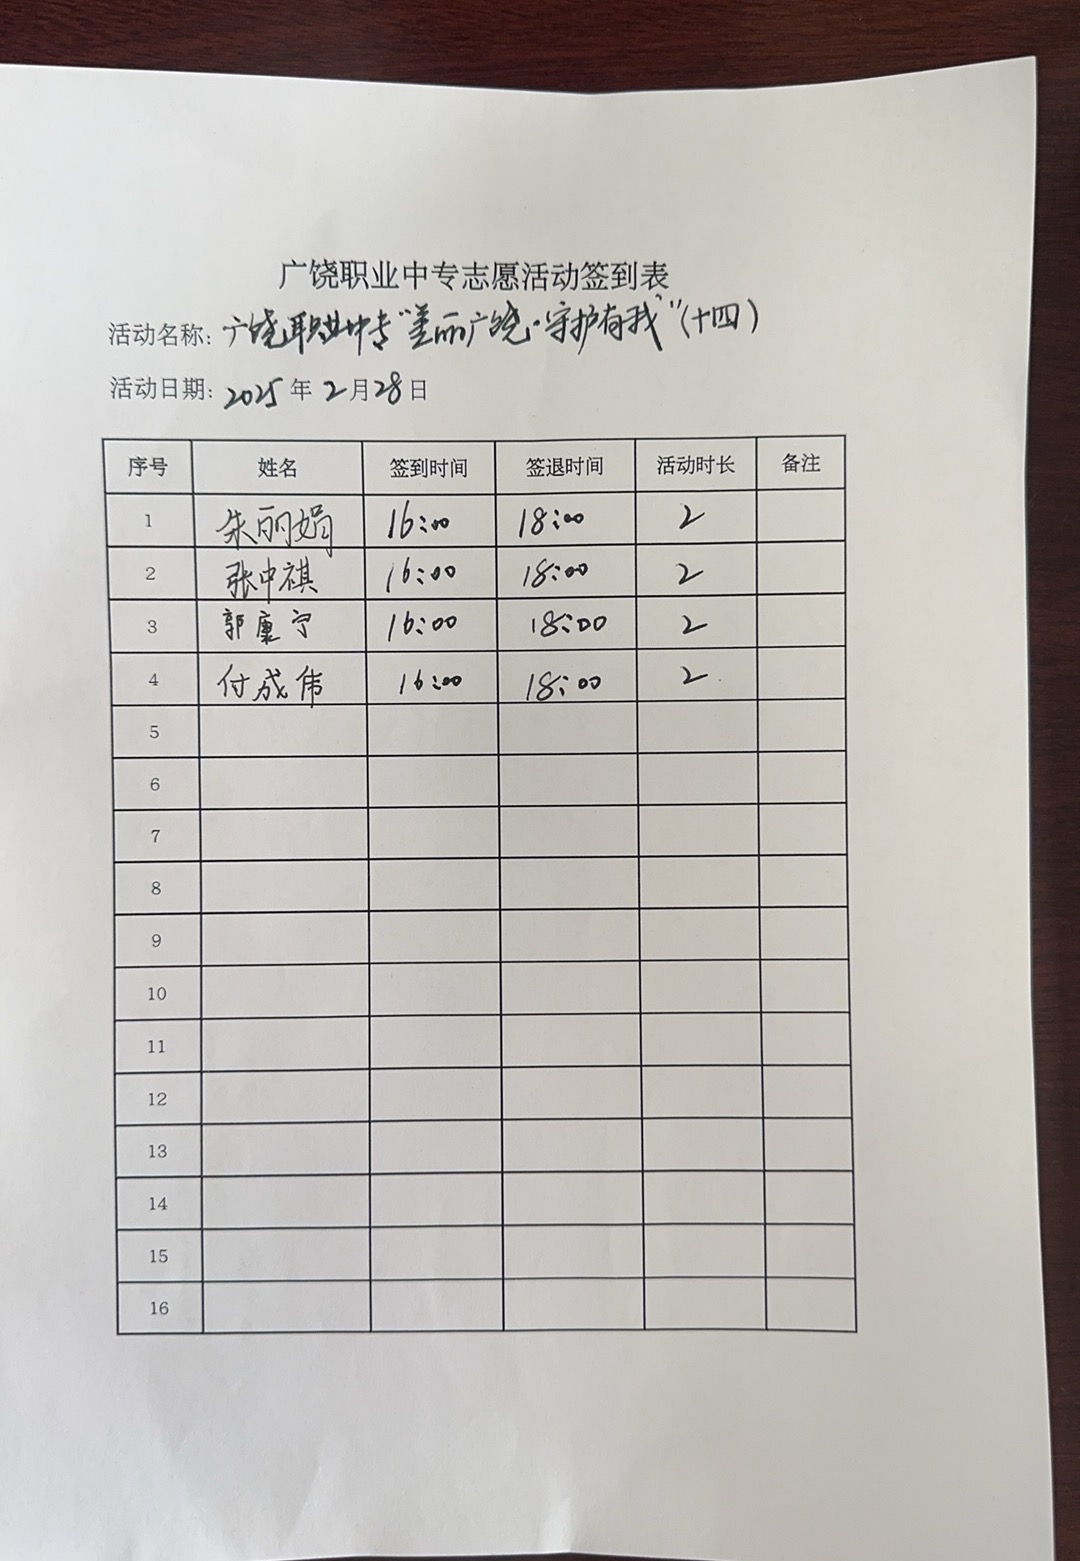 广饶职业中专志愿活动签到表
活动名称: 广饶职业中专“美丽广饶·守护有我”(十四)
活动日期: 2025 年 2 月 28 日
序号 姓名 签到时间 签退时间 活动时长 备注
1 朱丽娟 16:00 18:00 2
2 张中祺 16:00 18:00 2
3 郭康宁 16:00 18:00 2
4 付成伟 16:00 18:00 2
5
6
7
8
9
10
11
12
13
14
15
16